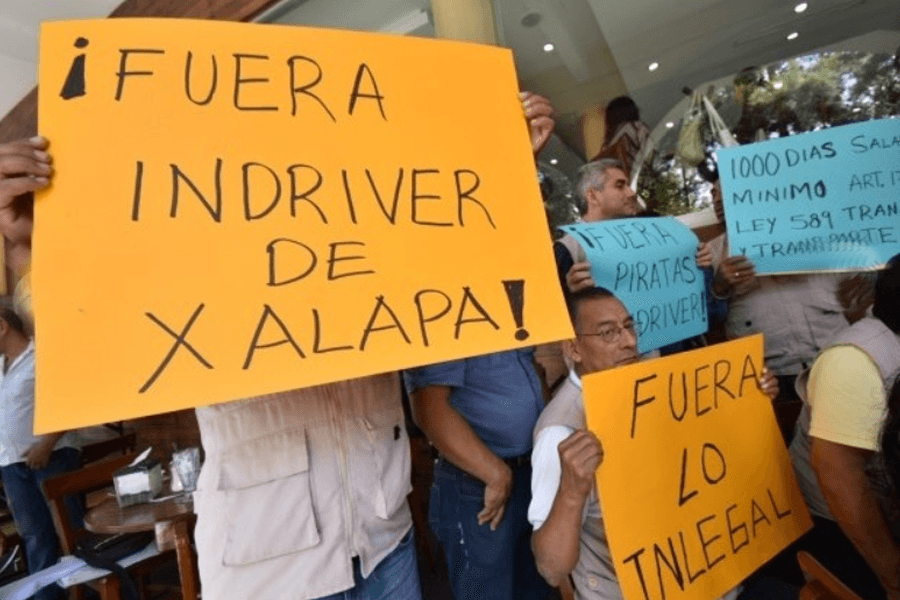 ¡FUERA
INDRIVER
DE
XALAPA!
¡FUERA
PIRATAS
DRIVER!
1000 DIAS SALA
MINIMO ART. 17
LEY 589 TRAN
Y TRANSPARTE
FUERA
LO
INLEGAL